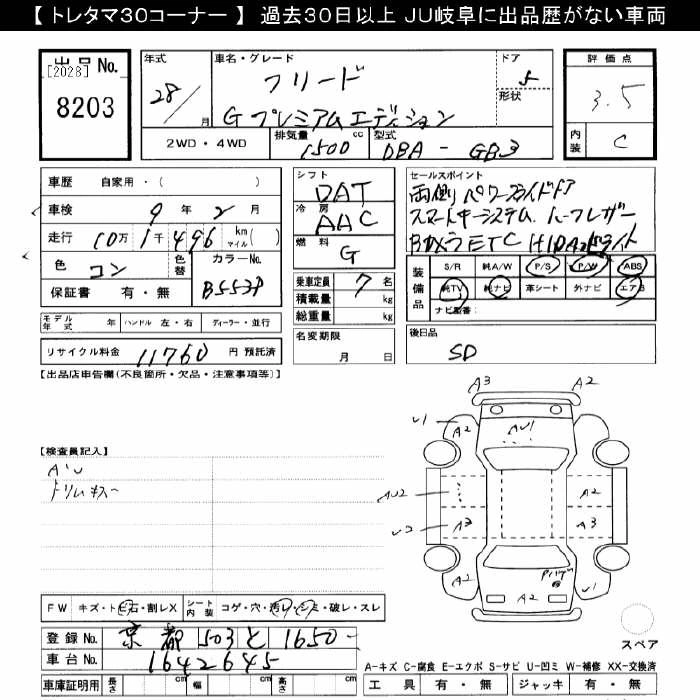 【 トレタマ30コーナー 】 過去30日以上 JU岐阜に出品歴がない車両
出品 No.
[2028]
8203
年式
28/ 月
車名・グレード
フリード
G プレミアムエディション
ドア
5
形状
評価点
3.5
内装
C
2WD・4WD
排気量 1500 cc
型式 DBA - GB3
車歴 自家用・( )
車検 9年 2月
走行 10万 1千 496 km マイル( )
色 コン 色替
カラーNo. B553P
保証書 有・無
シフト DAT
冷房 AAC
燃料 G
乗車定員 7 名
積載量 kg
総重量 kg
セールスポイント
両側パワースライドドア
スマートキーシステム. ハーフレザー
Bカメラ ETC HIDヘッドライト
装備品
S/R 純A/W P/S P/W ABS
純TV 純ナビ 革シート 外ナビ エアB
ナビ型番:
モデル年式 年 ハンドル 左・右 ディーラー・並行
リサイクル料金 11760 円 預託済
名変期限
月 日
後日品
SD
【出品店申告欄(不良箇所・欠品・注意事項等)】
【検査員記入】
AU
トリムキズー
A3 A2
U1 A2 AU1 A2
AU2 A2
U2 A3 A3
Pハゲ
A2 A2 U1
FW キズ・トビ石・割レX
シート内装 コゲ・穴・汚レ・シミ・破レ・スレ
登録 No. 京都 503 と 1650
車台 No. 1642645
スペア
A-キズ C-腐食 E-エクボ S-サビ U-凹ミ W-補修 XX-交換済
車庫証明用 長さ cm 幅 cm 高さ cm
工具 有・無 ジャッキ 有・無